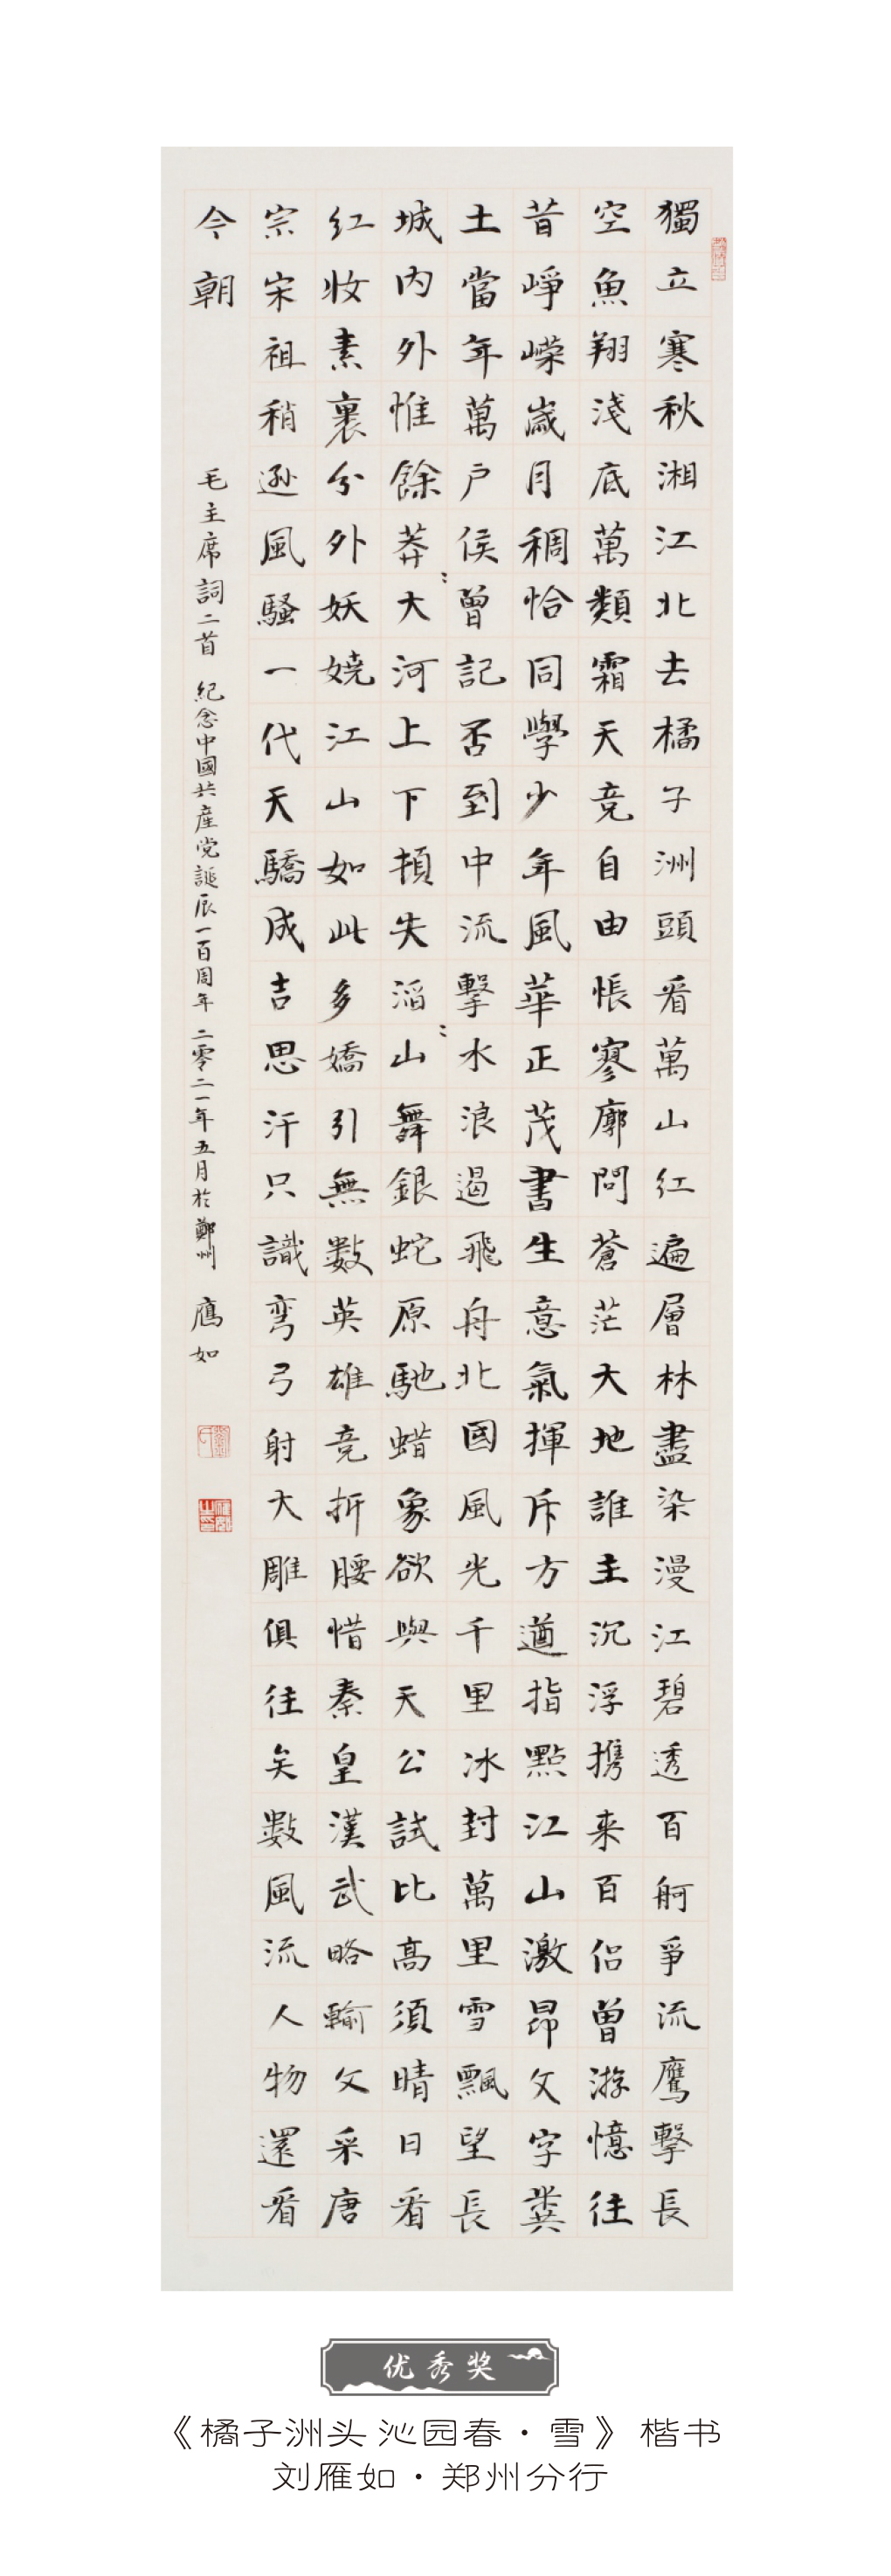 獨立寒秋湘江北去橘子洲頭看萬山红遍層林盡染漫江碧透百舸爭流鷹擊長
空魚翔淺底萬類霜天竞自由悵寥廓問蒼茫大地誰主沉浮携来百侣曾游憶往
昔崢嶸歲月稠恰同學少年風華正茂書生意氣揮斥方遒指點江山激昂文字糞
土當年萬户侯曾記否到中流擊水浪遏飛舟北國風光千里冰封萬里雪飄望長
城内外惟餘莽：大河上下頓失滔：山舞銀蛇原馳蜡象欲與天公試比高須晴日看
红妆素裹分外妖嬈江山如此多嬌引無數英雄竞折腰惜秦皇漢武略輸文采唐
宗宋祖稍逊風騷一代天驕成吉思汗只識弯弓射大雕俱往矣數風流人物還看
今朝
毛主席詞二首 紀念中國共產党誕辰一百周年 二零二一年五月於鄭州 鴈如
优秀奖
《橘子洲头 沁园春·雪》 楷书
刘雁如·郑州分行